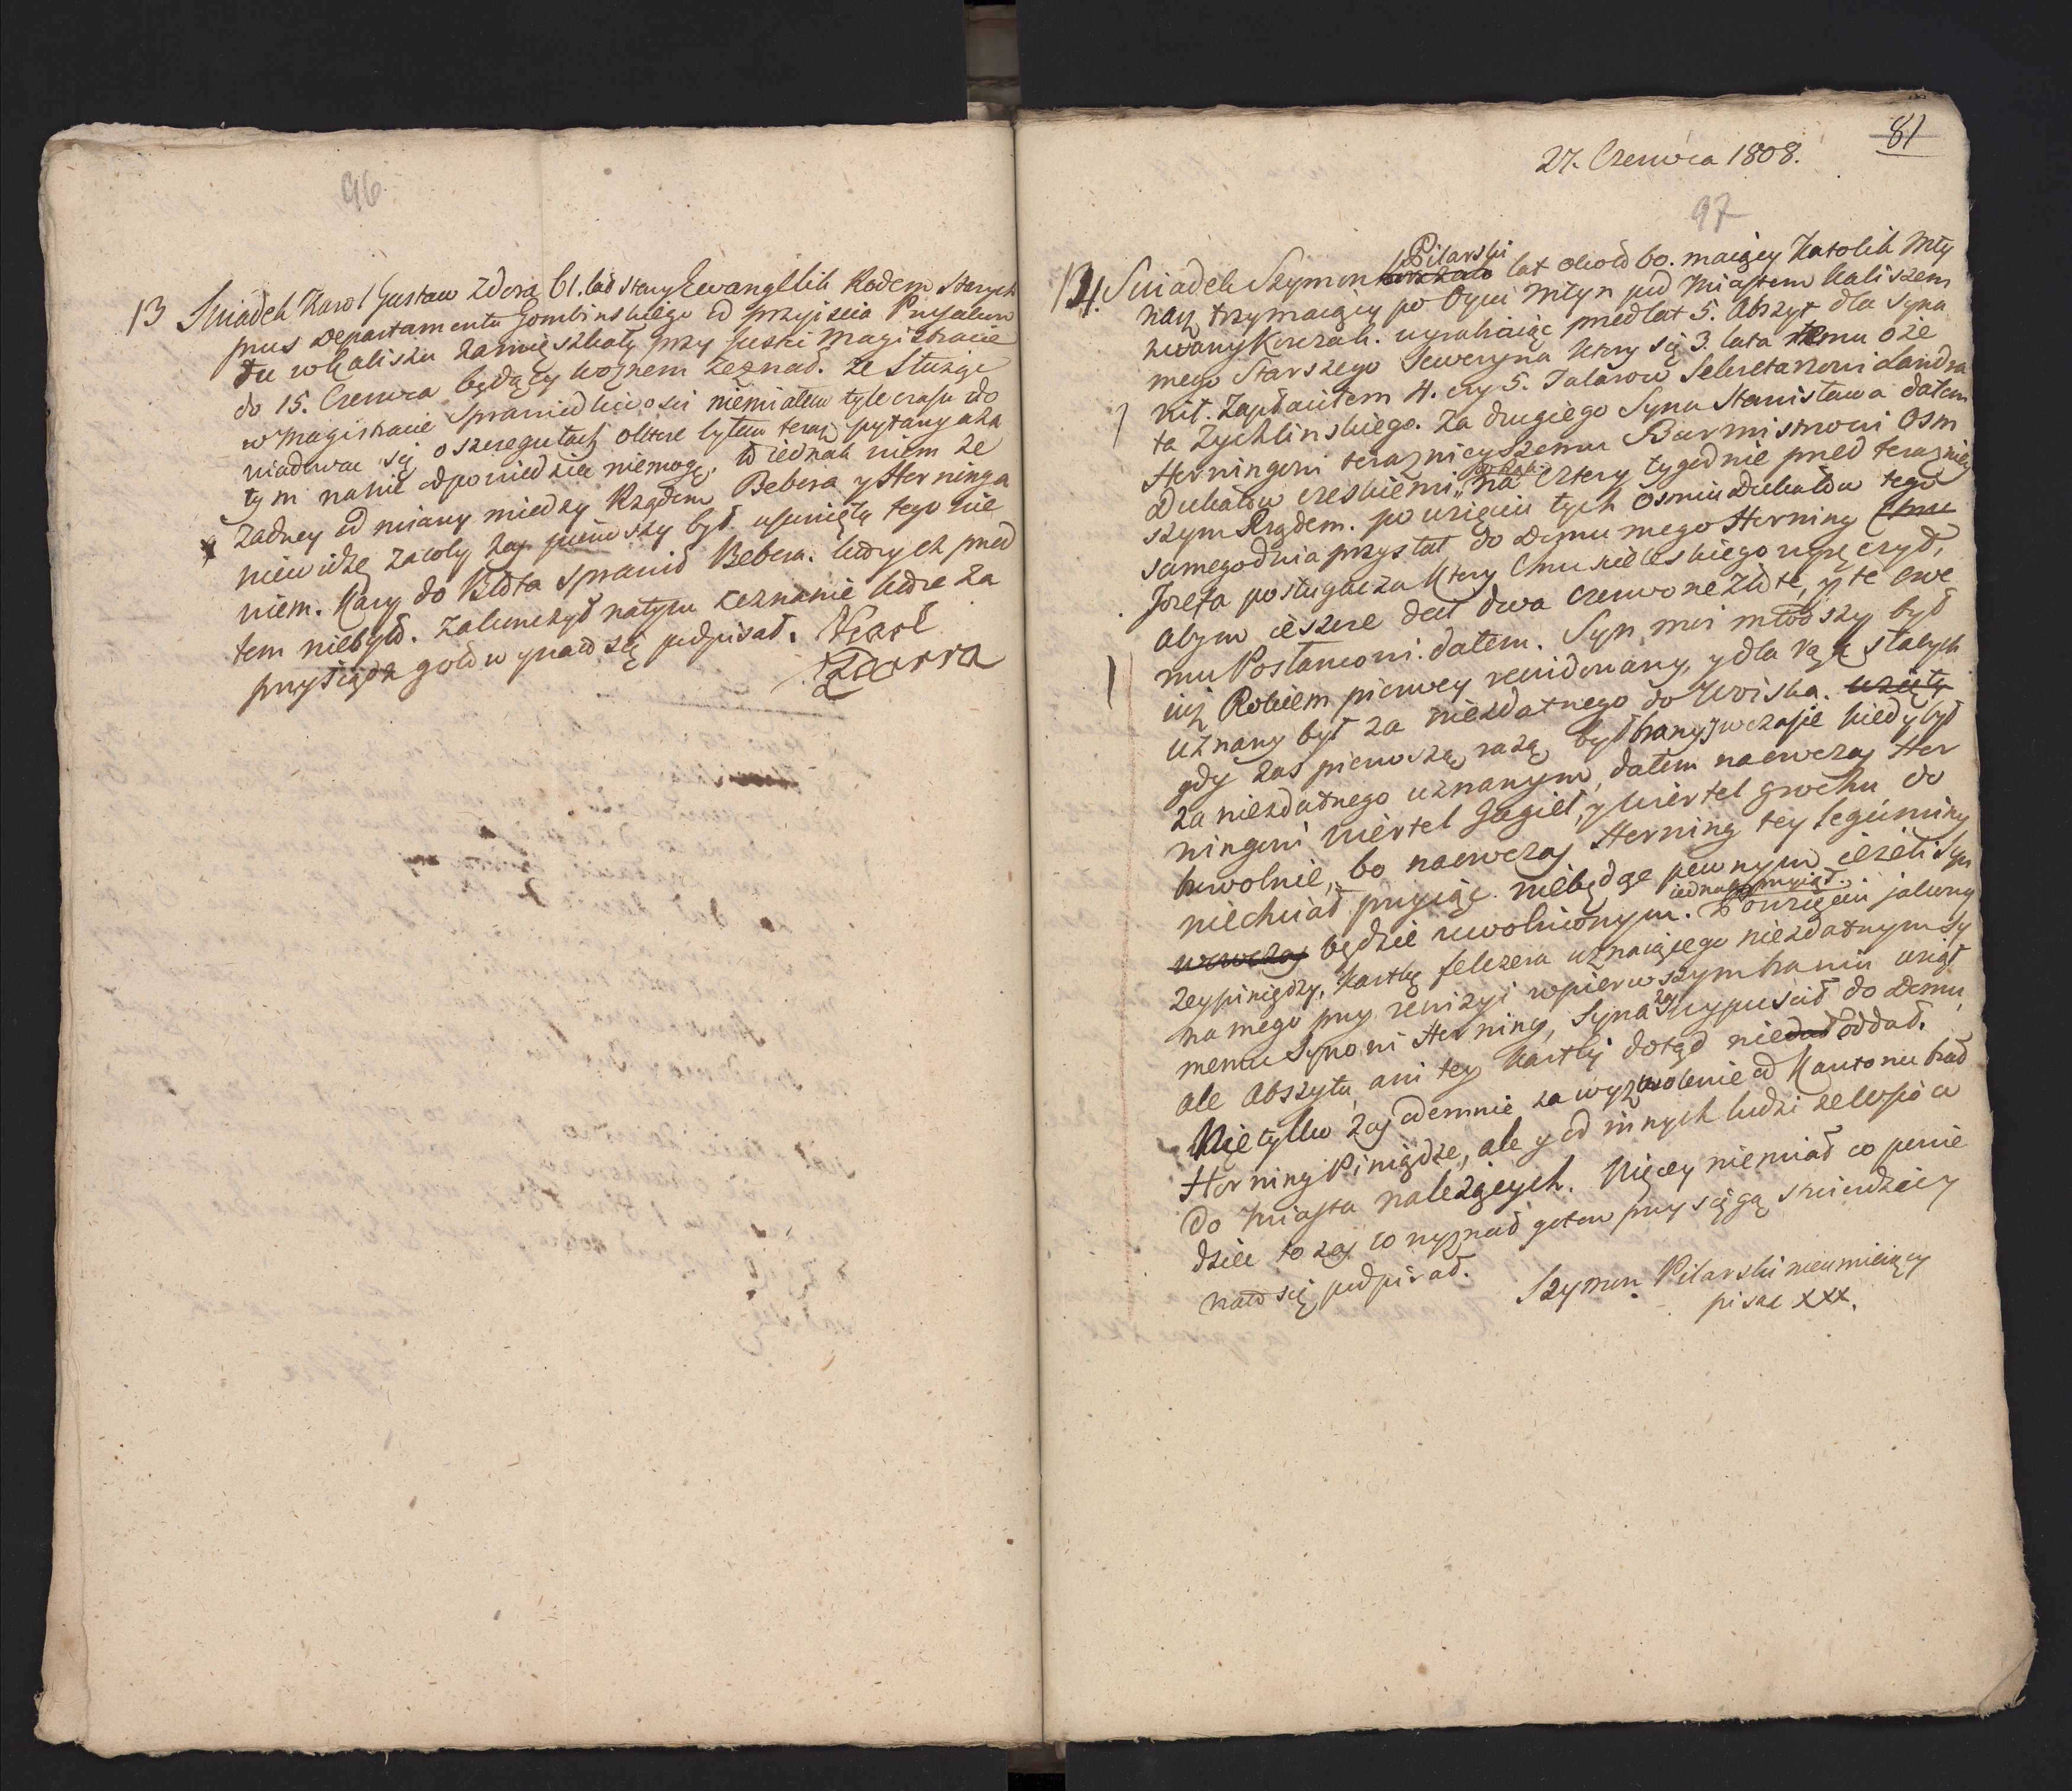 96
13 Swiadek Karol Gustaw Zdora 61. lat stary Ewangelik Rodem Starych
prus Departamentu Gombinskiego od przyiscia Prusakow
tu w Kaliszu zamięszkały przy Pruski Magistracie
do 15. Czerwca będący woznem zeznał. ze Służąc
w Magistracie Sprawiedliwosci niemiałem tyle czasu do
wiadywac się o szeregułach o ktore byłem teraz pytany a za
tym na nie odpowiedziec niemogę. to iednak wiem ze
zadney odmiany miedzy Rządem Bebera y Herninga
niewidzę zacoby zas pierwszy był usunięty tego nie
wiem. Kary do Błota sprawił Beber. ktorych przed
tem niebyło. zakonczył natym zeznanie ktore za
przysiądz gotow y nato się podpisał. Karl
Zdorra
81
27. Czerwca 1808.
97
Pilarski
14. Swiadek Szymon lat około 60. maiący Katolik Mły
narz trzymaiący po Oycu Młyn pod Miastem Kaliszem
zwany Korczak. wyrabiaiąc przed lat 5. Abszyt dla Syna
mego Starszego Seweryna ktory się 3. lata temu oże
nił. Zapłaciłem 4. czy 5. Talarow Sekretarzowi Landra
ta Zychlinskiego. Za drugiego Syna Stanisława dałem
Herningowi teraznieyszemu Burmistrzowi Osm
Dukatow czeskiemi na cztery tygodnie przed terazniey
szym Rządem. po wzięciu tych osmiu Dukatow tego
samego dnia przysłał do Domu mego Herning Chmie
Jozefa posługacza ktory Chmielewskiego wyręczył,
abym ieszcze dał dwa czerwone Złote, y te owe
mu Posłancowi dałem. Syn moi młodszy był
iuz Rokiem pierwey rewidowany, y dla rąk słabych
uznany był za niezdatnego do Woiska. wzięty
gdy zas pierwszą razą był brany w czasie kiedy był
za niezdatnego uznanym, dałem naowczas Her
ningowi wiertel Jagieł, y wiertel grochu do
browolnie, bo naowczas Herning tey leguminy
niechciał przyiąc niebędąc pewnym iezeli Syn
iednak przyiął.
wowczas będzie uwolnionym. Powzięciu jakowy
zeypiniędzy. Kartkę felczera uznaiącego niezdatnym Sy
na mego przy rewizyi w pierwszym braniu wziął
memu Synowi Herning, Syna zas wypuscił do Domu,
ale Abszytu, ani tey Kartki dotąd nie oddał.
Nietylko zas odemnie za wyzwolenie od Kantonu brał
Herning Piniądze, ale y od innych ludzi ze wsiow
do Miasta należących. Więcey niemiał co powie
dziec to zas co wyznał gotow przysięgą stwierdzic y
nato się podpisał.
Szymon Pilarski nieumieiący
pisac XXX.